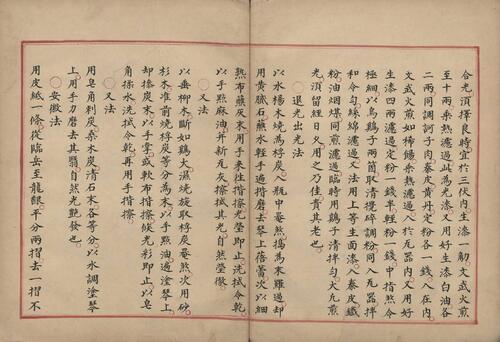 合光須擇良時宜於三伏內生漆一觔文武火煎
至十兩乘熱濾過此為光漆又用好生漆白油各
二兩同調訶子肉秦皮黄丹定粉各一錢入在內
文武火煎如稀餳乘熱濾入於瓦器內又用好
生漆四兩濾過定粉一錢半輕粉一錢中指然令
極細以烏鷄子兩箇取清攪碎調粉同入瓦器拌
和令勻綿濾過又法用上等生面漆秦皮鐵
粉油烟煤同煎濾過臨時用鷄子清拌勻大凢煎
光須留經日用之乃佳貴其老也
○退光出光法
以水楊木燒為桴炭入瓶中菴熬搗為末羅過却
用黄膩石蘸水輕手遍揩磨去琴上蓓蕾次以細
熟布蘸灰末用手來徃揩擦光瑩即止洗拭令乾
以手點麻油并新瓦灰擦拭其光自然瑩徹
○又法
以垂柳木斷如鷄大濕燒旋取桴炭菴熬次用砂
杉木准前燒桴炭等分為末以水調塗琴上
却捺炭末以手掌或軟布揩擦候光彩即止以皂
角揉水洗拭令乾再用手揩擦
○又法
用皂角刺炭柒木炭清石末各等分以水調塗琴
上用手力磨去其翳自然光艷發也
○安徽法
用皮紙一條從臨岳至龍齦平分兩摺去一摺不